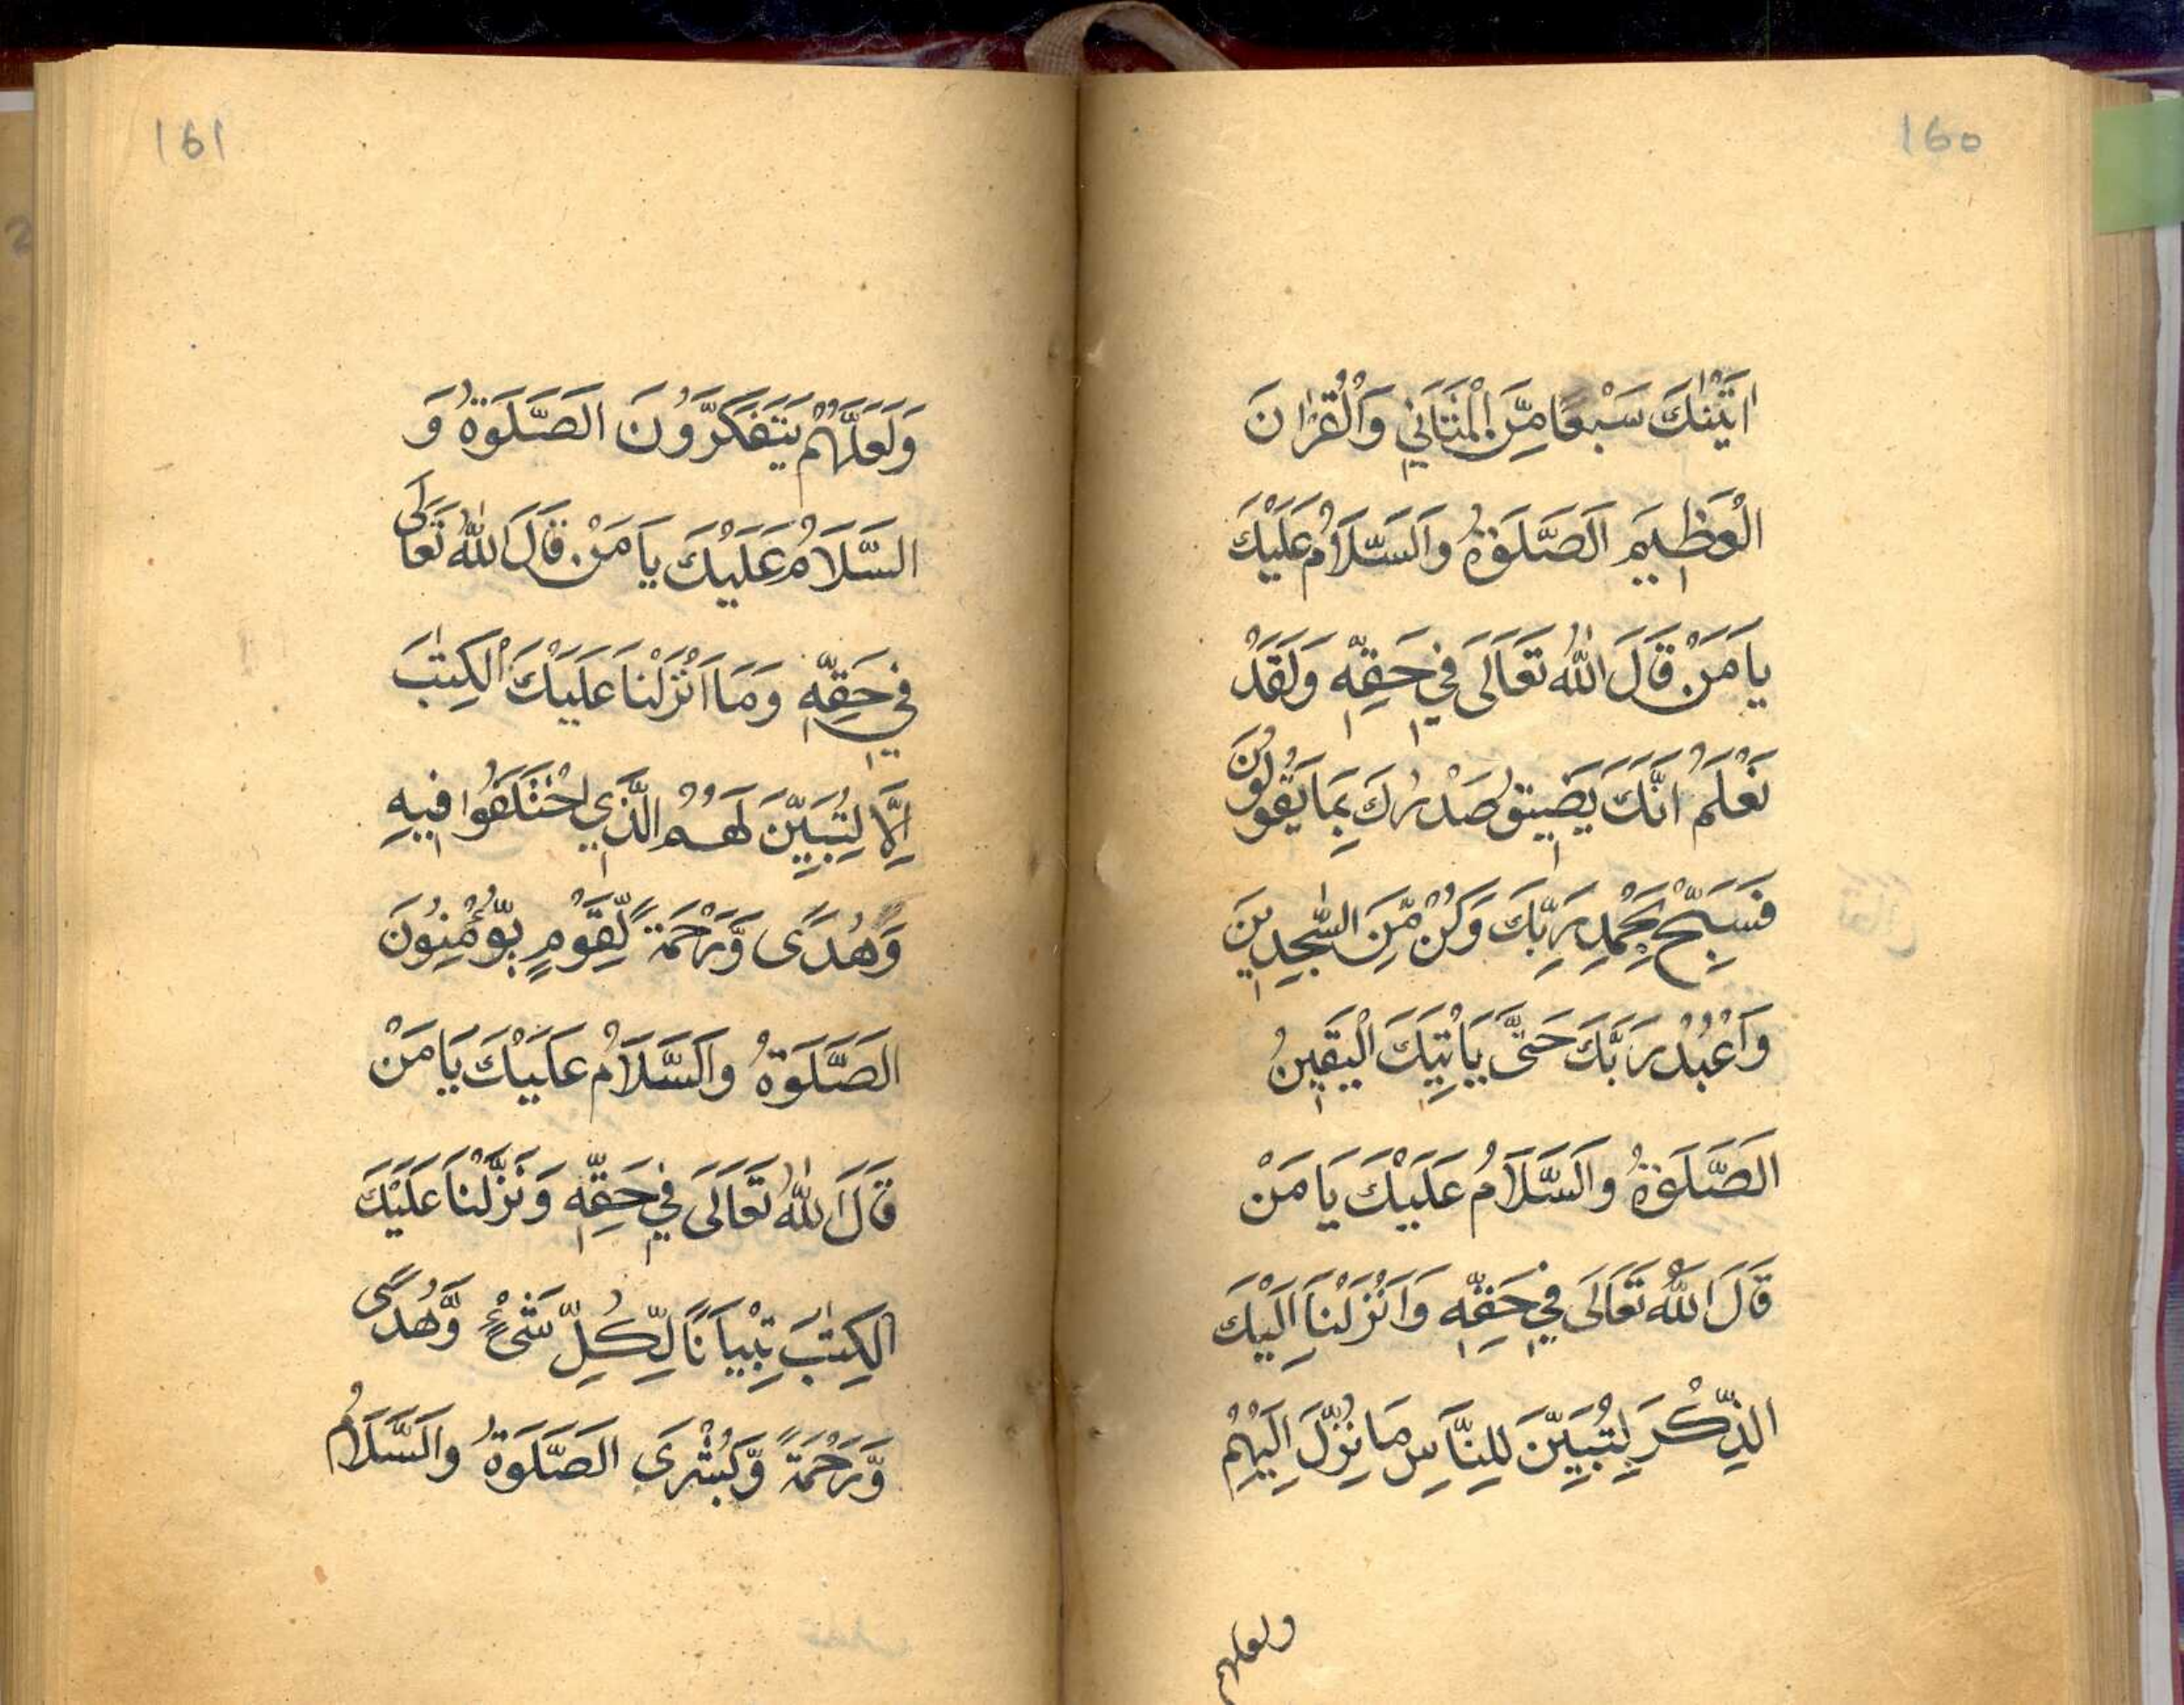 160
اٰتَيْنٰكَ سَبْعًا مِّنَ الْمَثَانِيْ وَالْقُرْاٰنَ
الْعَظِيْمَ الَصَّلَوٰةُ وَالَسَّلَامُ عَلَيْكَ
يَا مَنْ قَالَ اللّٰهُ تَعَالَى فِيْ حَقِّهٖ وَلَقَدْ
نَعْلَمُ اَنَّكَ يَضِيْقُ صَدْرُكَ بِمَا يَقُوْلُوْنَ
فَسَبِّحْ بِحَمْدِ رَبِّكَ وَكُنْ مِّنَ السّٰجِدِيْنَ
وَاَعْبُدْ رَبَّكَ حَتّٰى يَاْتِيَكَ الْيَقِيْنُ
الَصَّلَوٰةُ وَالَسَّلَامُ عَلَيْكَ يَا مَنْ
قَالَ اللّٰهُ تَعَالَى فِيْ حَقِّهٖ وَاَنْزَلْنَا اِلَيْكَ
الذِّكْرَ لِتُبَيِّنَ لِلنَّاسِ مَا نُزِّلَ اِلَيْهِمْ
ولعلهم
161
وَلَعَلَّهُمْ يَتَفَكَّرُوْنَ الَصَّلَوٰةُ وَ
السَّلَامُ عَلَيْكَ يَا مَنْ قَالَ اللّٰهُ تَعَالَى
فِيْ حَقِّهٖ وَمَا اَنْزَلْنَا عَلَيْكَ الْكِتٰبَ
اِلَّا لِتُبَيِّنَ لَهُمُ الَّذِي اخْتَلَفُوْا فِيْهِ
وَهُدًى وَّرَحْمَةً لِّقَوْمٍ يُّؤْمِنُوْنَ
الَصَّلَوٰةُ وَالَسَّلَامُ عَلَيْكَ يَا مَنْ
قَالَ اللّٰهُ تَعَالَى فِيْ حَقِّهٖ وَنَزَّلْنَا عَلَيْكَ
الْكِتٰبَ تِبْيَانًا لِّكُلِّ شَيْءٍ وَّهُدًى
وَّرَحْمَةً وَّبُشْرٰى الَصَّلَوٰةُ وَالَسَّلَامُ